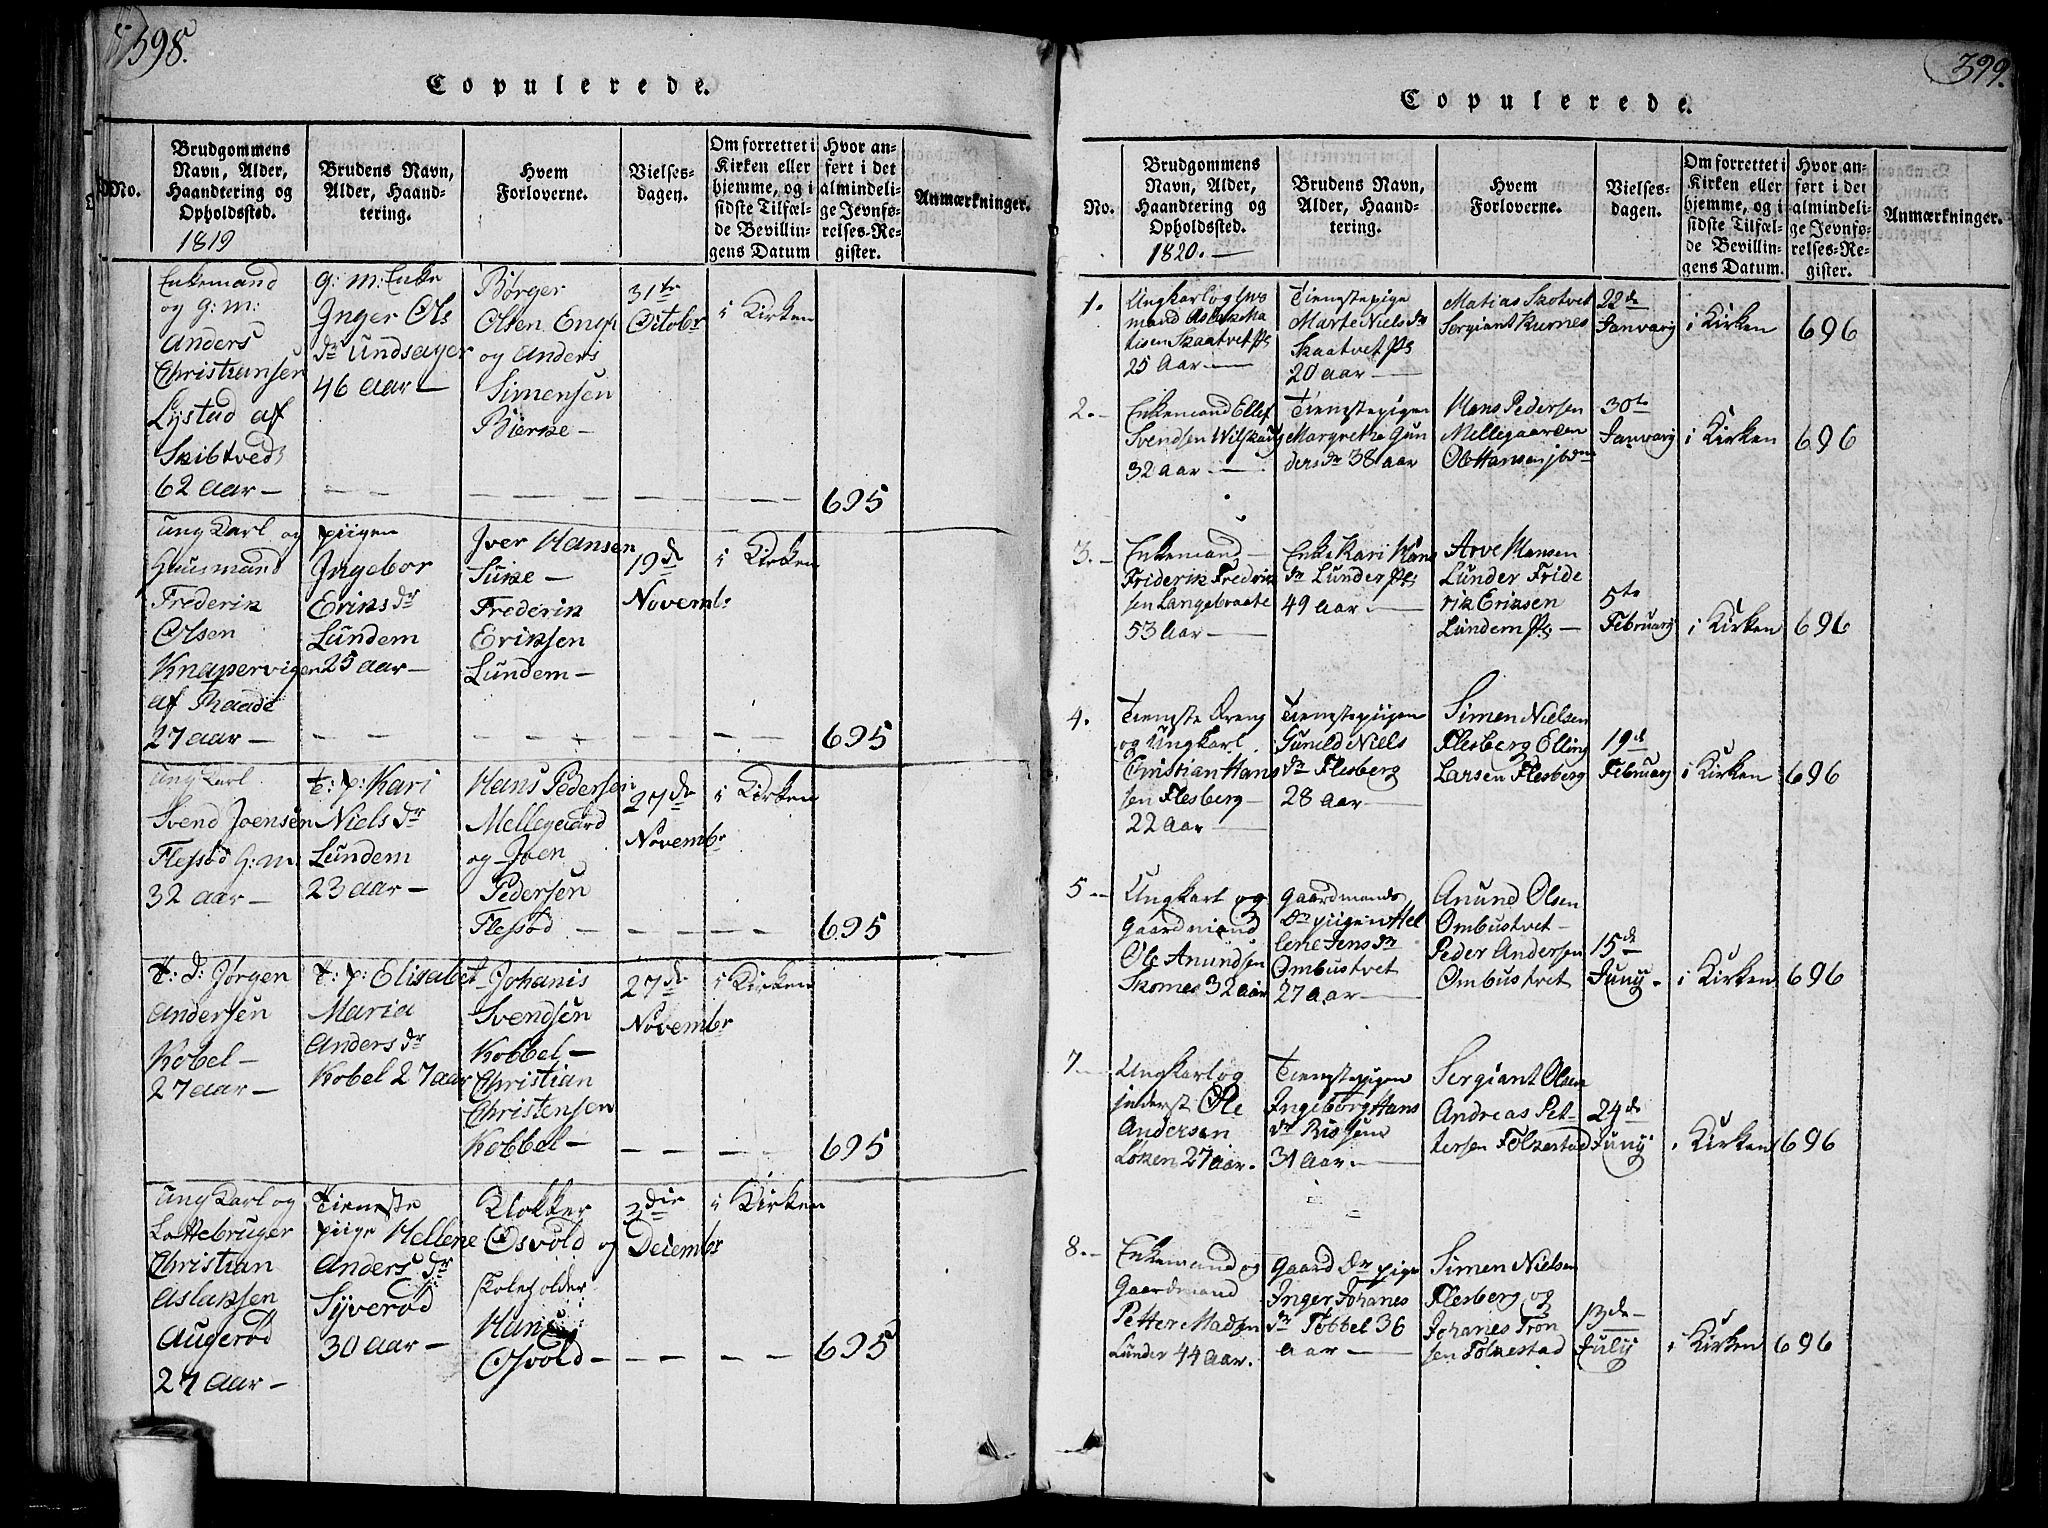 398.
Copulerede.
No.
Brudgommens
Navn, Alder,
Haandtering og
Opholdssted.
1819
Brudens Navn,
Alder, Haand-
tering.
Hvem
Forloverne.
Vielses-
dagen.
Om forrettet i
Kirken eller
hjemme, og i
sidste Tilfæl-
de Bevillin-
gens Datum
Hvor an-
ført i det
almindeli-
ge Jevnfø-
relses-Re-
gister.
Anmærkninger.
Enkemand
og g: m:
Anders
Christiansen
Lystad af
Skibtved
62 aar —
g: m: Enke
Inger Ols
dr Undsager
46 aar —
Børger
Olsen Engh
og Anders
Simensen
Bierke —
31te
Octobr
i Kirken
695
Ung Karl og
Huusmand
Frederik
Olsen
Knapervigen
af Raade
27 aar —
piigen
Ingebor
Eriks dr
Lundem
25 aar —
Iver Hansen
Sune —
Frederik
Eriksen
Lundem —
19de
Novembr
i Kirken
695
Ung Karl
Svend Joensen
Flessød G: M:
32 aar —
t: p: Kari
Niels dr
Lundem
23 aar —
Hans Pedersen
Mellegaard
og Joen
Pedersen
Flessød —
27de
Novembr
i Kirken
695
t: d: Jørgen
Andersen
Kobel —
27 aar —
t: p: Elisabet
Maria
Anders dr
Kobel 27 aar
Johanis
Svendsen
Kobbel —
Christian
Christensen
Kobbel —
27de
Novembr
i Kirken
695
Ung Karl og
Lottebruger
Christian
Aslaksen
Augerød
27 aar —
Tieneste
piige Hellene
Anders dr
Syverød
30 aar —
Klokker
Osvold og
Skoleholder
Hans
Osvold —
3die
Decembr
i Kirken
695
399.
Copulerede.
No.
Brudgommens
Navn, Alder,
Haandtering og
Opholdssted.
1820. —
Brudens Navn,
Alder, Haand-
tering.
Hvem
Forloverne.
Vielses-
dagen.
Om forrettet i
Kirken eller
hjemme, og i
sidste Tilfæl-
de Bevillin-
gens Datum.
Hvor an-
ført i det
almindeli-
ge Jevnfø-
relses-Re-
gister.
Anmærkninger.
1.
Ungkarl og Huus
mand Aslak Ma
tisen Skaatvet Pls
25 Aar —
Tienstepige
Marte Niels dr
Skaatvet Pls
20 aar —
Matias Skotvet
Sergiant Kurnes
22de
Janvary
i Kirken
696
2. —
Enkemand Ellef
Svendsen
32 aar —
Tienstepigen
Margrethe Gun
ders dr 38 aar
Hans Pedersen
Mellegaarden
Ole Hansen ibdm
30te
Janvary
i Kirken
696
3. —
Enkemand —
Friderik Fredrik
sen Langebraate
53 Aar —
Enke Kari Hans
dr Lunder Pls
49 Aar —
Arve Hansen
Lunder Fride
rik Eriksen
Lundem Pls —
5te
February
i Kirken
696
4.
Tienste Dreng
og Ungkarl
Christian Hans
sen Flesberg —
22 Aar —
Tienstepiigen
Guneld Niels
dr Flesberg
28 Aar —
Simen Nielsen
Flesberg Elling
Larsen Flesberg
19de
February
i Kirken
696
5 —
Ungkarl og
Gaardmand
Ole Anundsen
Skornes 32 aar
Gaardmands
Dr piigen Hel
lene Jens dr
Ombustvet
27 Aar —
Anund Olsen
Ombustvet
Peder Andersen
Ombustvet
15de
Juny.
i Kirken
696
7 —
Ungkarl og
inderst Ole
Andersen
Løken 27 Aar.
Tienstepigen
Ingeborg Hans
dr
31 Aar. —
Sergiant Olsen
Andreas Pet-
tersen Folkestad
24de
Juny
i Kirken
696
8. —
Enkemand og
Gaardmand
Petter Madsen
Lunder 44 Aar.
Gaard Dr pige
Inger Johanes
dr Tobbel 36
Aar —
Simen Nielsen
Flesberg og
Johanes Tron
sen Folkestad
13de
July
i Kirken
696